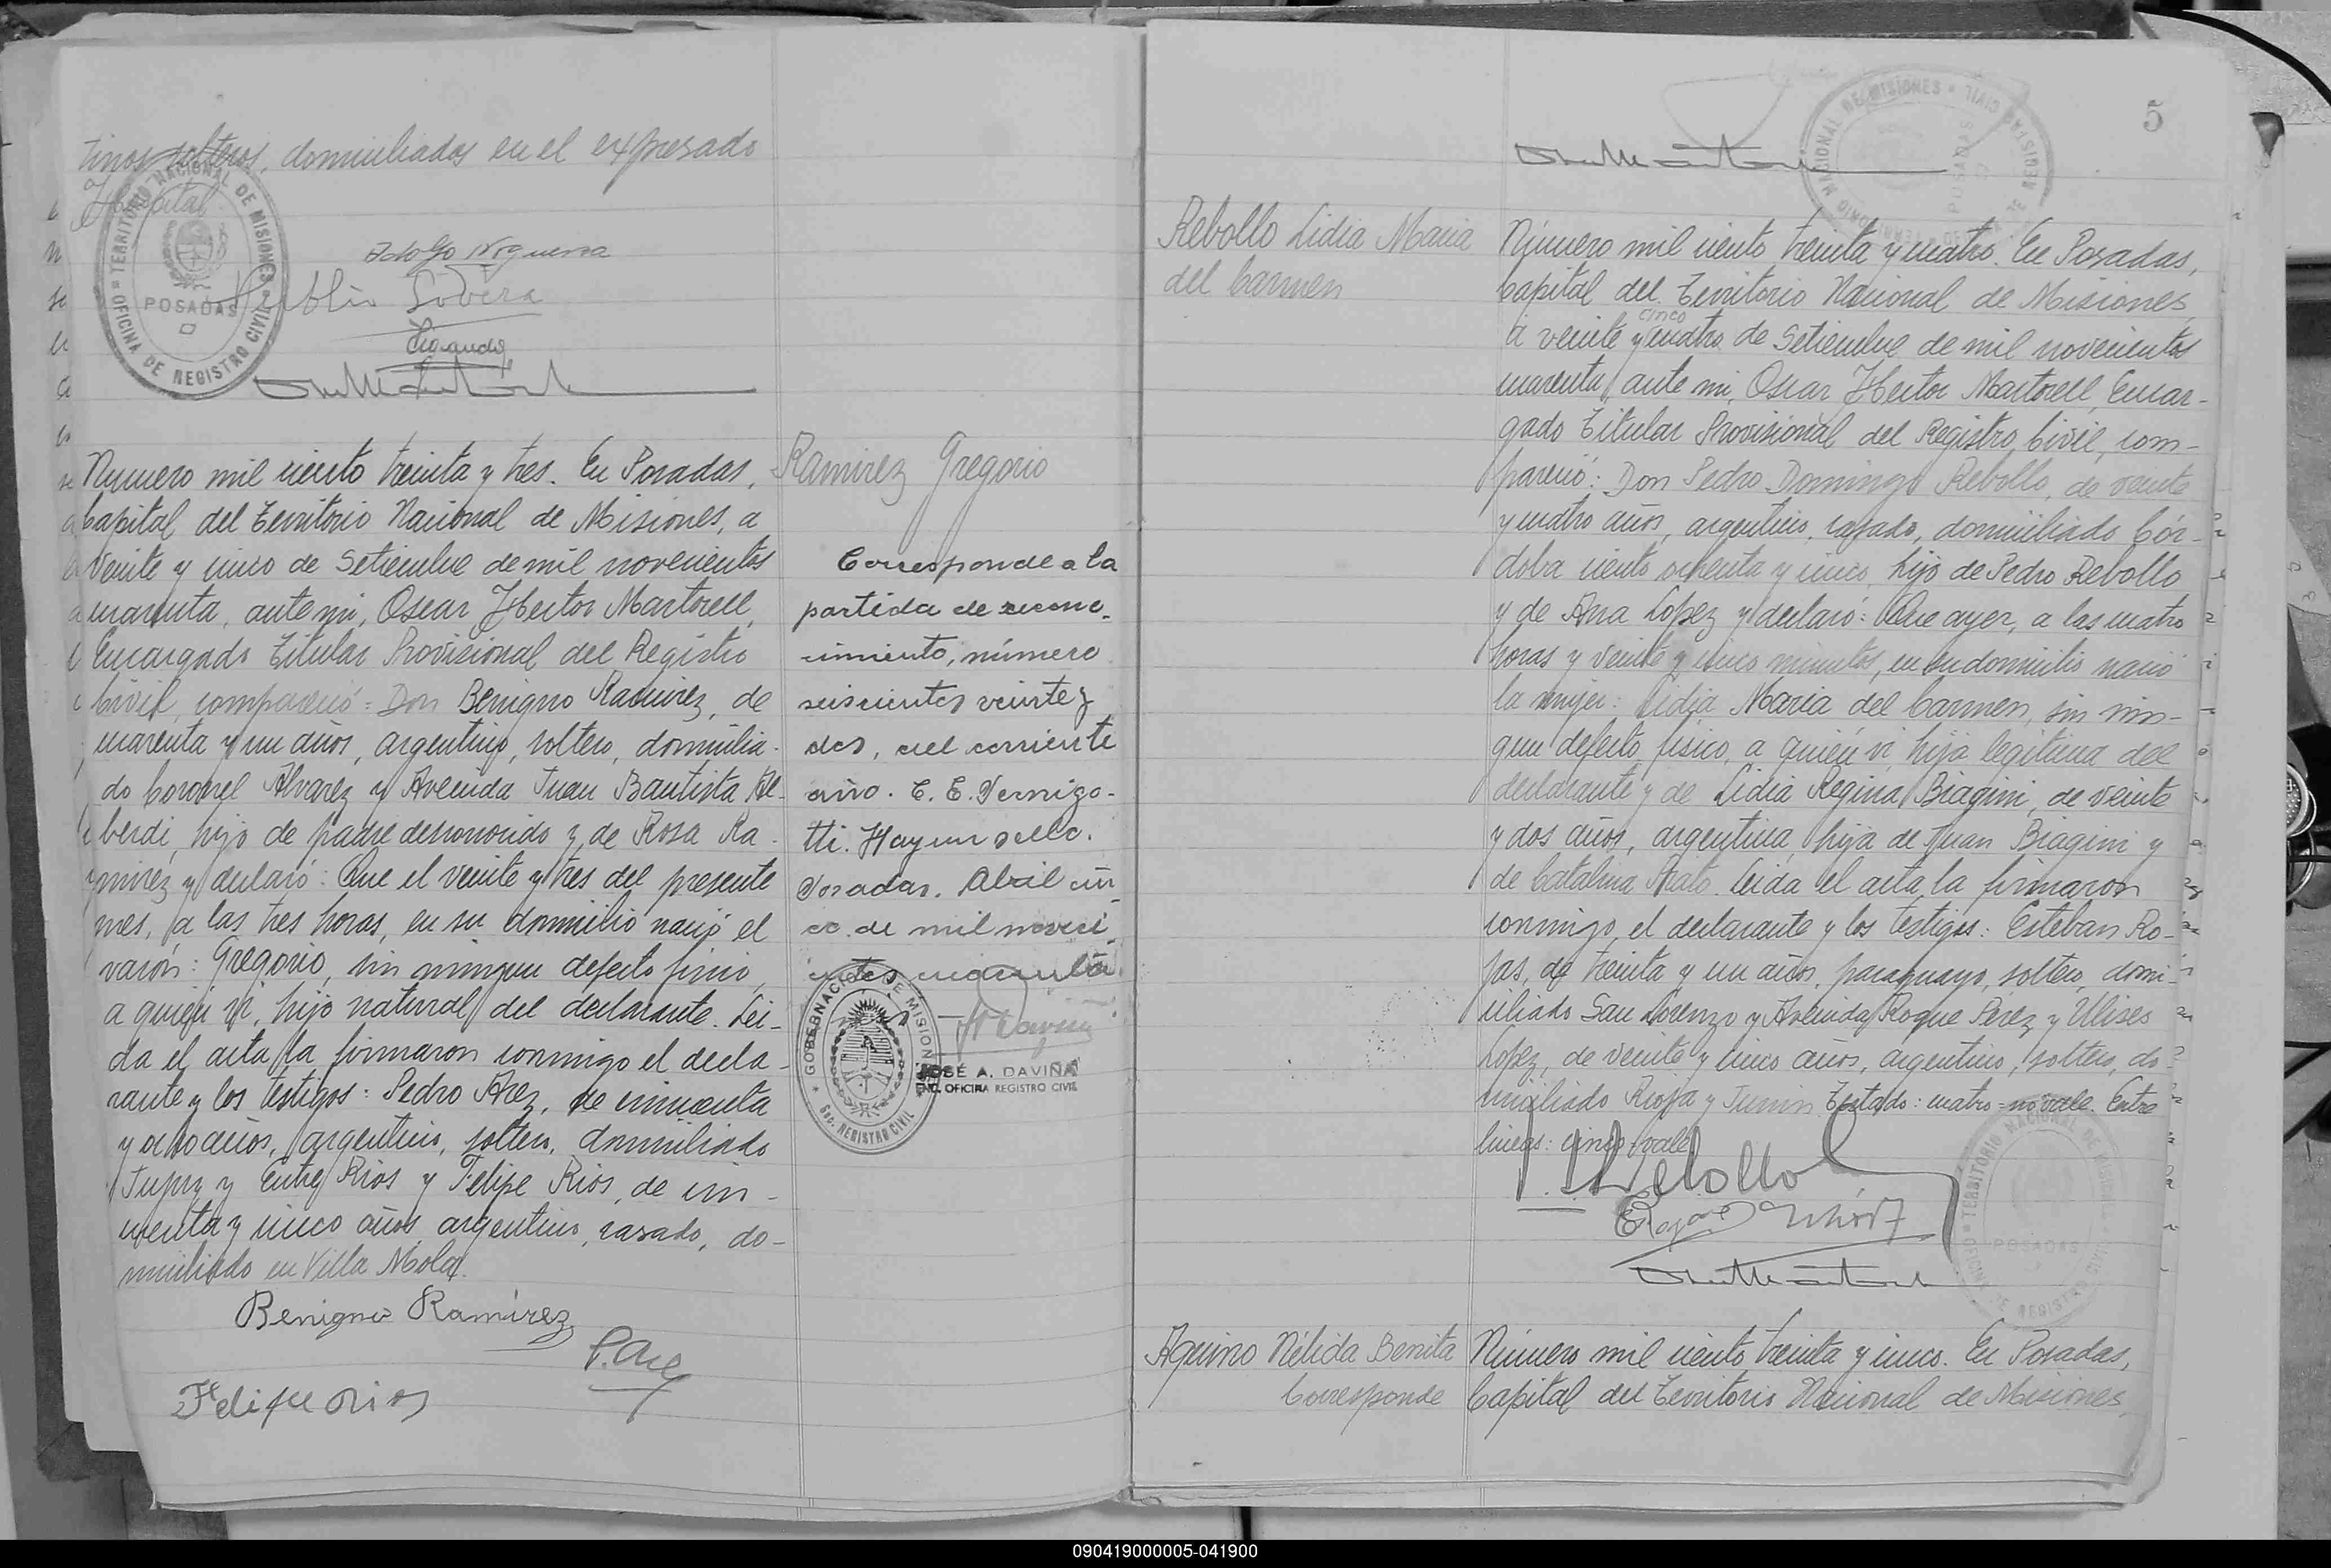 tinos solteros, domiciliados en el expresado
Hospital
TERRITORIO NACIONAL DE MISIONES
POSADAS
OFICINA DE REGISTRO CIVIL
Adolfo Noguera
Publio Lovera
Numero mil ciento treinta y tres. En Posadas,
Capital del Territorio Nacional de Misiones, a
veinte y cinco de Setiembre de mil novecientos
cuarenta, ante mi, Oscar Hector Martorell,
Encargado Titular Provisional del Registro
Civil, compareció: Don Benigno Ramirez, de
cuarenta y un años, argentino, soltero, domicilia-
do Coronel Alvarez y Avenida Juan Bautista Al-
berdi, hijo de padre desconocido y de Rosa Ra-
mirez y declaró: Que el veinte y tres del presente
mes, a las tres horas, en su domicilio nació el
varón: Gregorio, sin ningun defecto fisico,
a quien vi, hijo natural del declarante. Lei-
da el acta, la firmaron conmigo el decla-
rante y los testigos: Pedro Arez, de cincuenta
y ocho años, argentino, soltero, domiciliado
Jujuy y Entre Rios y Felipe Rios, de cin-
cuenta y cinco años, argentino, casado, do-
miciliado en Villa Mola.
Benigno Ramírez
P. Are
Felipe Rios
Ramirez Gregorio
Corresponde a la
partida de recono-
cimiento, número
seiscientos veinte y
dos, del corriente
año. E. E. Vernigo-
tti. Hay un sello.
Posadas. Abril cin
co de mil noveci
entos cuarenta
GOBERNACION DE MISIONES
Sec. REGISTRO CIVIL
JOSÉ A. DAVIÑA
ENC. OFICINA REGISTRO CIVIL
5
TERRITORIO NACIONAL DE MISIONES
POSADAS
Rebollo Lidia Maria
del Carmen
Número mil ciento treinta y cuatro. En Posadas,
Capital del Territorio Nacional de Misiones,
cinco
a veinte y cuatro de Setiembre de mil novecientos
cuarenta, ante mi, Oscar Hector Martorell, Encar-
gado Titular Provisional del Registro Civil, com-
pareció: Don Pedro Domingo Rebollo, de veinte
y cuatro años, argentino, casado, domiciliado Cór-
doba ciento ochenta y cinco, hijo de Pedro Rebollo
y de Ana Lopez y declaró: Que ayer, a las cuatro
horas y veinte y cinco minutos, en su domicilio nació
la mujer: Lidia Maria del Carmen, sin nin-
gun defecto fisico, a quien vi, hija legitima del
declarante y de Lidia Regina Biagini, de veinte
y dos años, argentina, hija de Juan Biagini y
de Catalina Rato. Leida el acta, la firmaron
conmigo, el declarante y los testigos: Esteban Ro-
jas, de treinta y un años, paraguayo, soltero, domi-
ciliado San Lorenzo y Avenida Roque Perez y Ulises
Lopez, de veinte y cinco años, argentino, soltero, do-
miciliado Rioja y Junin. Testado: cuatro = no vale. Entre
lineas: cinco = vale.
Rebollo
TERRITORIO NACIONAL DE MISIONES
POSADAS
OFICINA DE REGISTRO CIVIL
Aquino Nélida Benita
Corresponde
Número mil ciento treinta y cinco. En Posadas,
Capital del Territorio Nacional de Misiones,
090419000005-041900